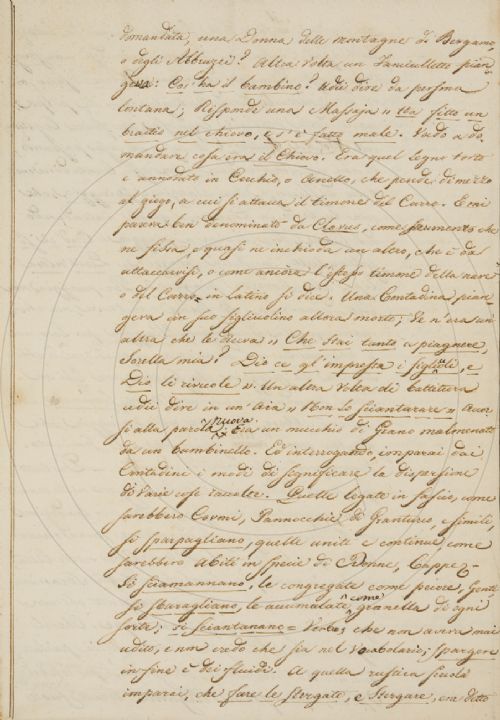 domandata, una Donna delle montagne di Bergamo,
o degli Abbruzzi? Altra volta un Fanciulletto pian
geva: Cos' ha il bambino? udii dire da persona
lontana; Risponde una Massaja " ha fitto un
braccio nel chiovo, e s'è fatto male. Vado a do
mandare cosa era il Chiovo. Era quel legno torto
e annodato in Cerchio, o Anello, che pende di mezzo
al giogo, a cui si attacca il timone del Carro. E mi
pareva ben denominato da Clavus, come strumento che
ne fissa, e quasi ne inchioda un altro, che è da
attaccarvisi, o come ancora l'istesso timone della nave
o del Carro in latino si dice. Una Contadina pian
geva un suo figliuolino allora morto; Ve n'era un'
altra che le diceva " Che stai tanto a piagnere,
Sorella mia? Dio ce gl' impresta i figlioli, e
Dio li rivuole ". Un altra volta di battitura
udii dire in un' Aia " Non lo sciantarare "
si alla parola nuova; Era un mucchio di Grano malmenato
da un bambinello. Ed interrogando, imparai dai
Contadini i modi di significare la dispersione
di varie cose raccolte. Quelle legate in fascio, come
sarebbero Covoni, Pannocchie di Granturco, e simili
si sparpagliano, quelle unite e continue, come
sarebbero Abiti in specie di Donne, Cappe
si sciamannano, le congregate come pecore, Gente
si sbaragliano, le accumulate, come granella di ogni
sorte, si sciantanano = Verbo, che non aveva mai
udito, e non credo che sia nel Vocabolario; spargere
in fine è dei fluidi. A quella rustica scuola
imparai, che fare le stergate, e Stergare, era detto